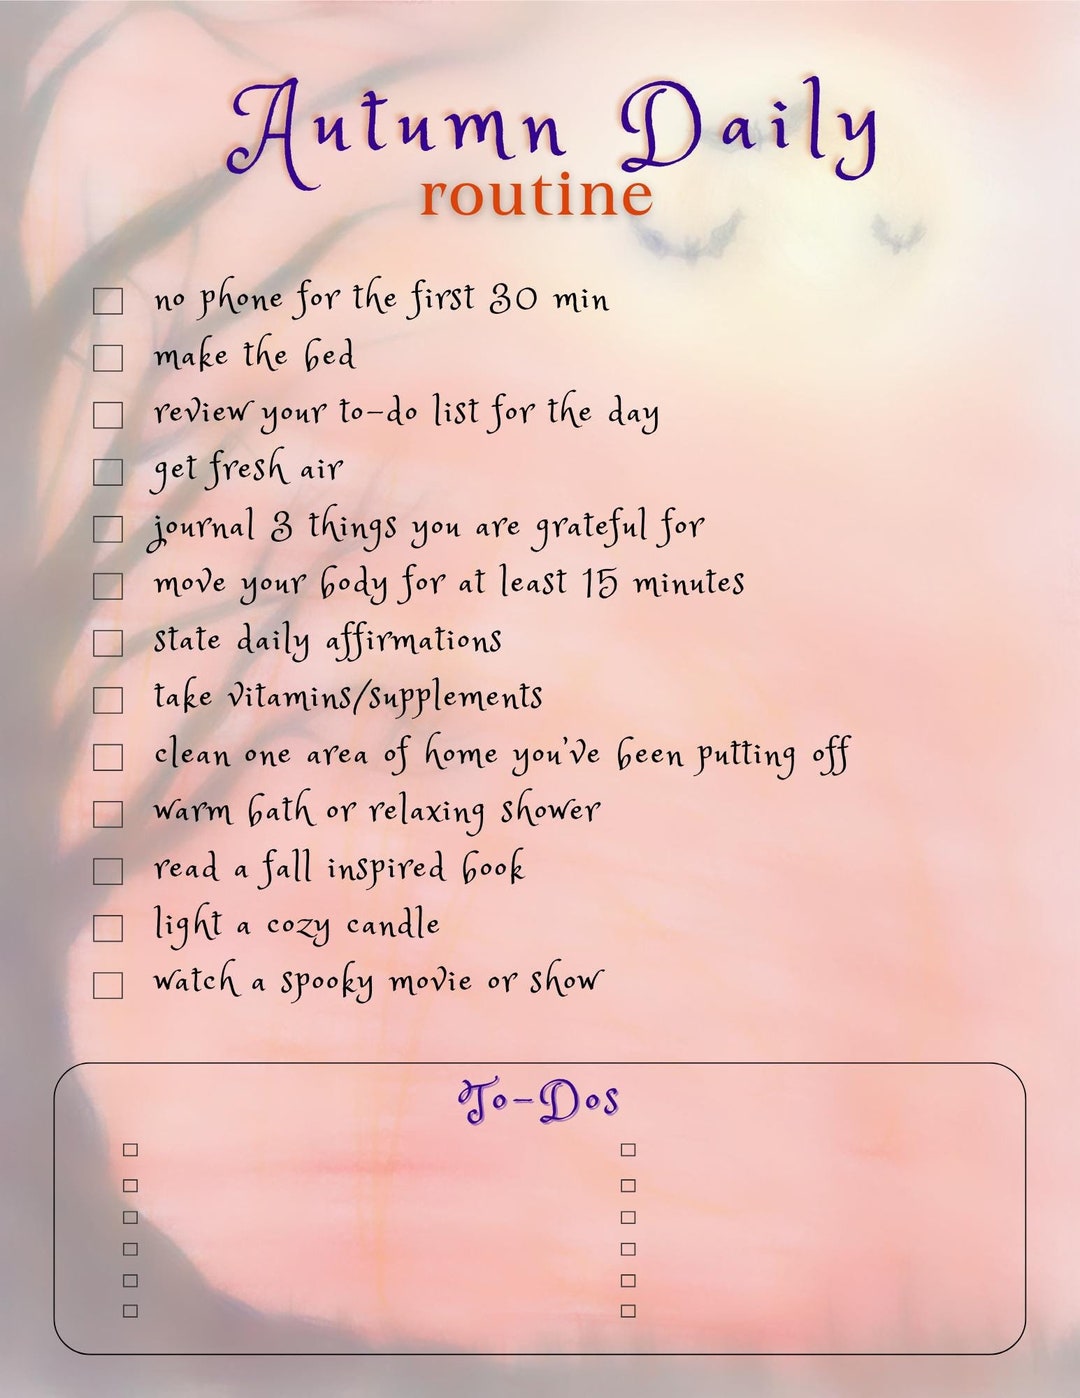 Autumn Daily
routine
no phone for the first 30 min
make the bed
review your to-do list for the day
get fresh air
journal 3 things you are grateful for
move your body for at least 15 minutes
state daily affirmations
take vitamins/supplements
clean one area of home you've been putting off
warm bath or relaxing shower
read a fall inspired book
light a cozy candle
watch a spooky movie or show
To-Dos